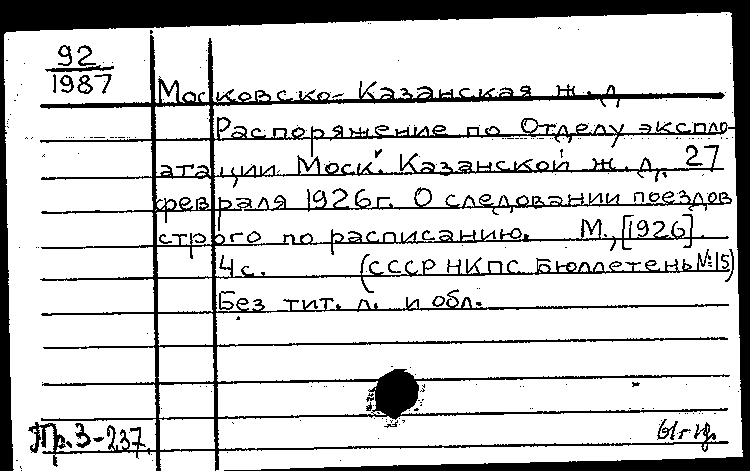 92
1987
Московско-Казанская ж.д
Распоряжение по Отделу эксплo-
атации Моск. Казанской ж.д. 27
февраля 1926г. О следовании поездов
строго по расписанию. М., [1926].
4с. (СССР НКПС Бюллетень №15)
Без тит. л. и обл.
Пр.3-237.